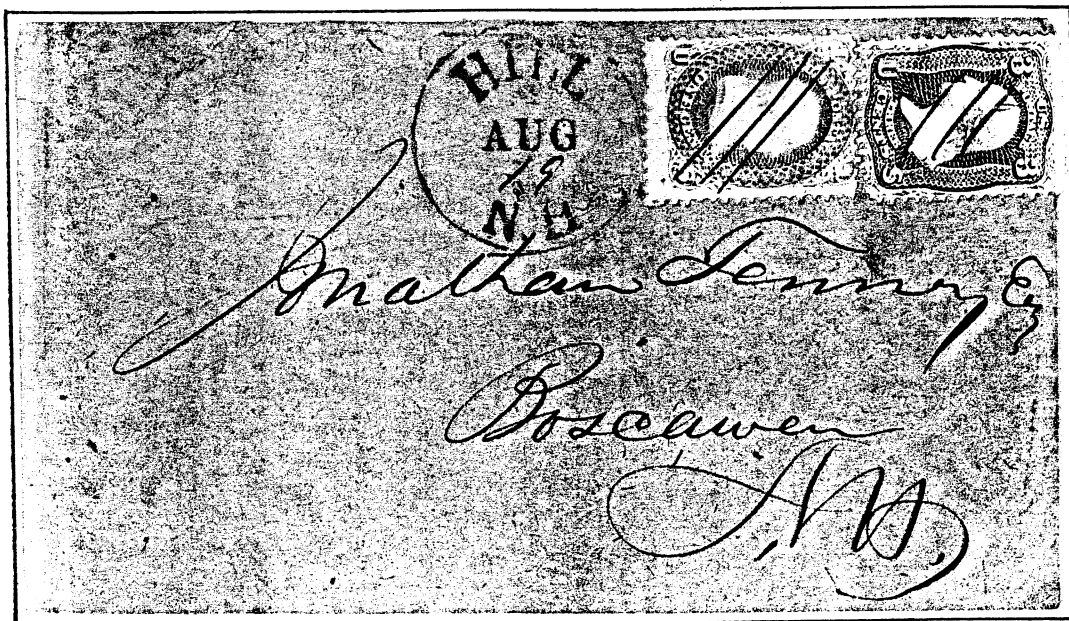 HILL
AUG
19
N.H
Jonathan Tenney, Esq
Boscawen
N.H.